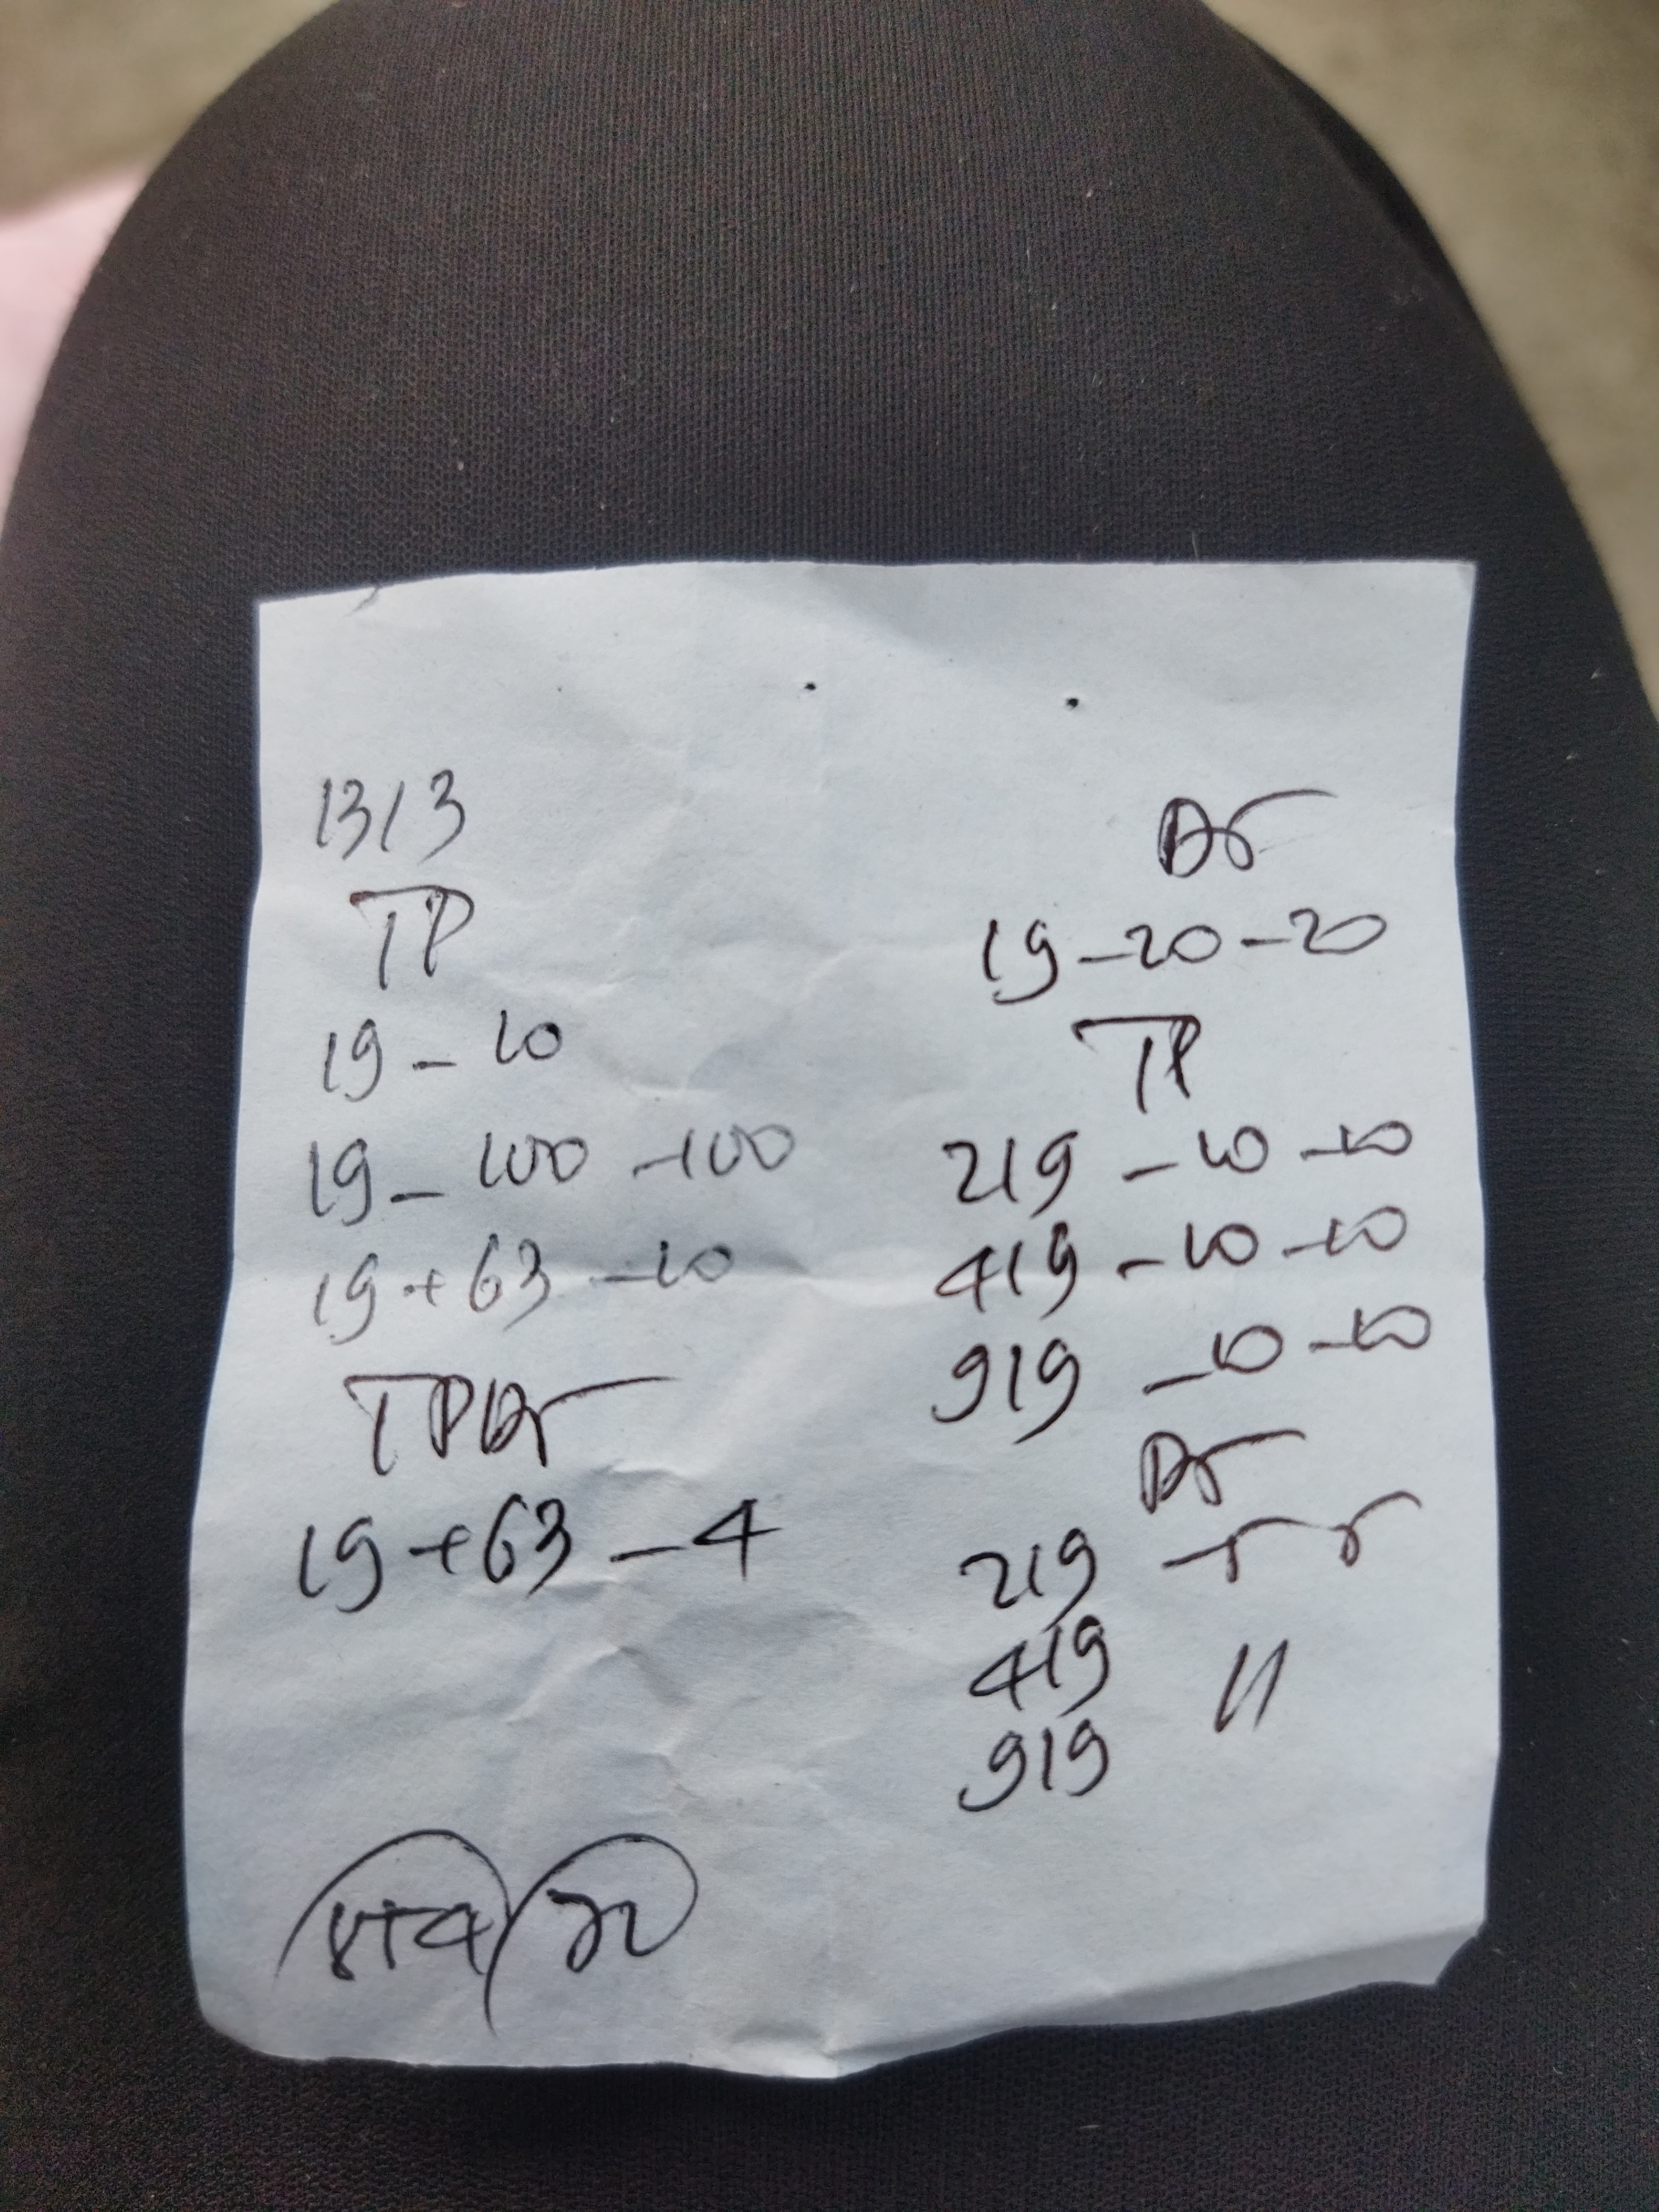 13/3
TP
19 - 10
19 - 100 - 100
19 + 63 - 10
TPDr
19 + 63 - 4
Dr
19 - 20 - 20
TP
219 - 10 - 10
419 - 10 - 10
919 - 10 - 10
Dr
219
419 "
919